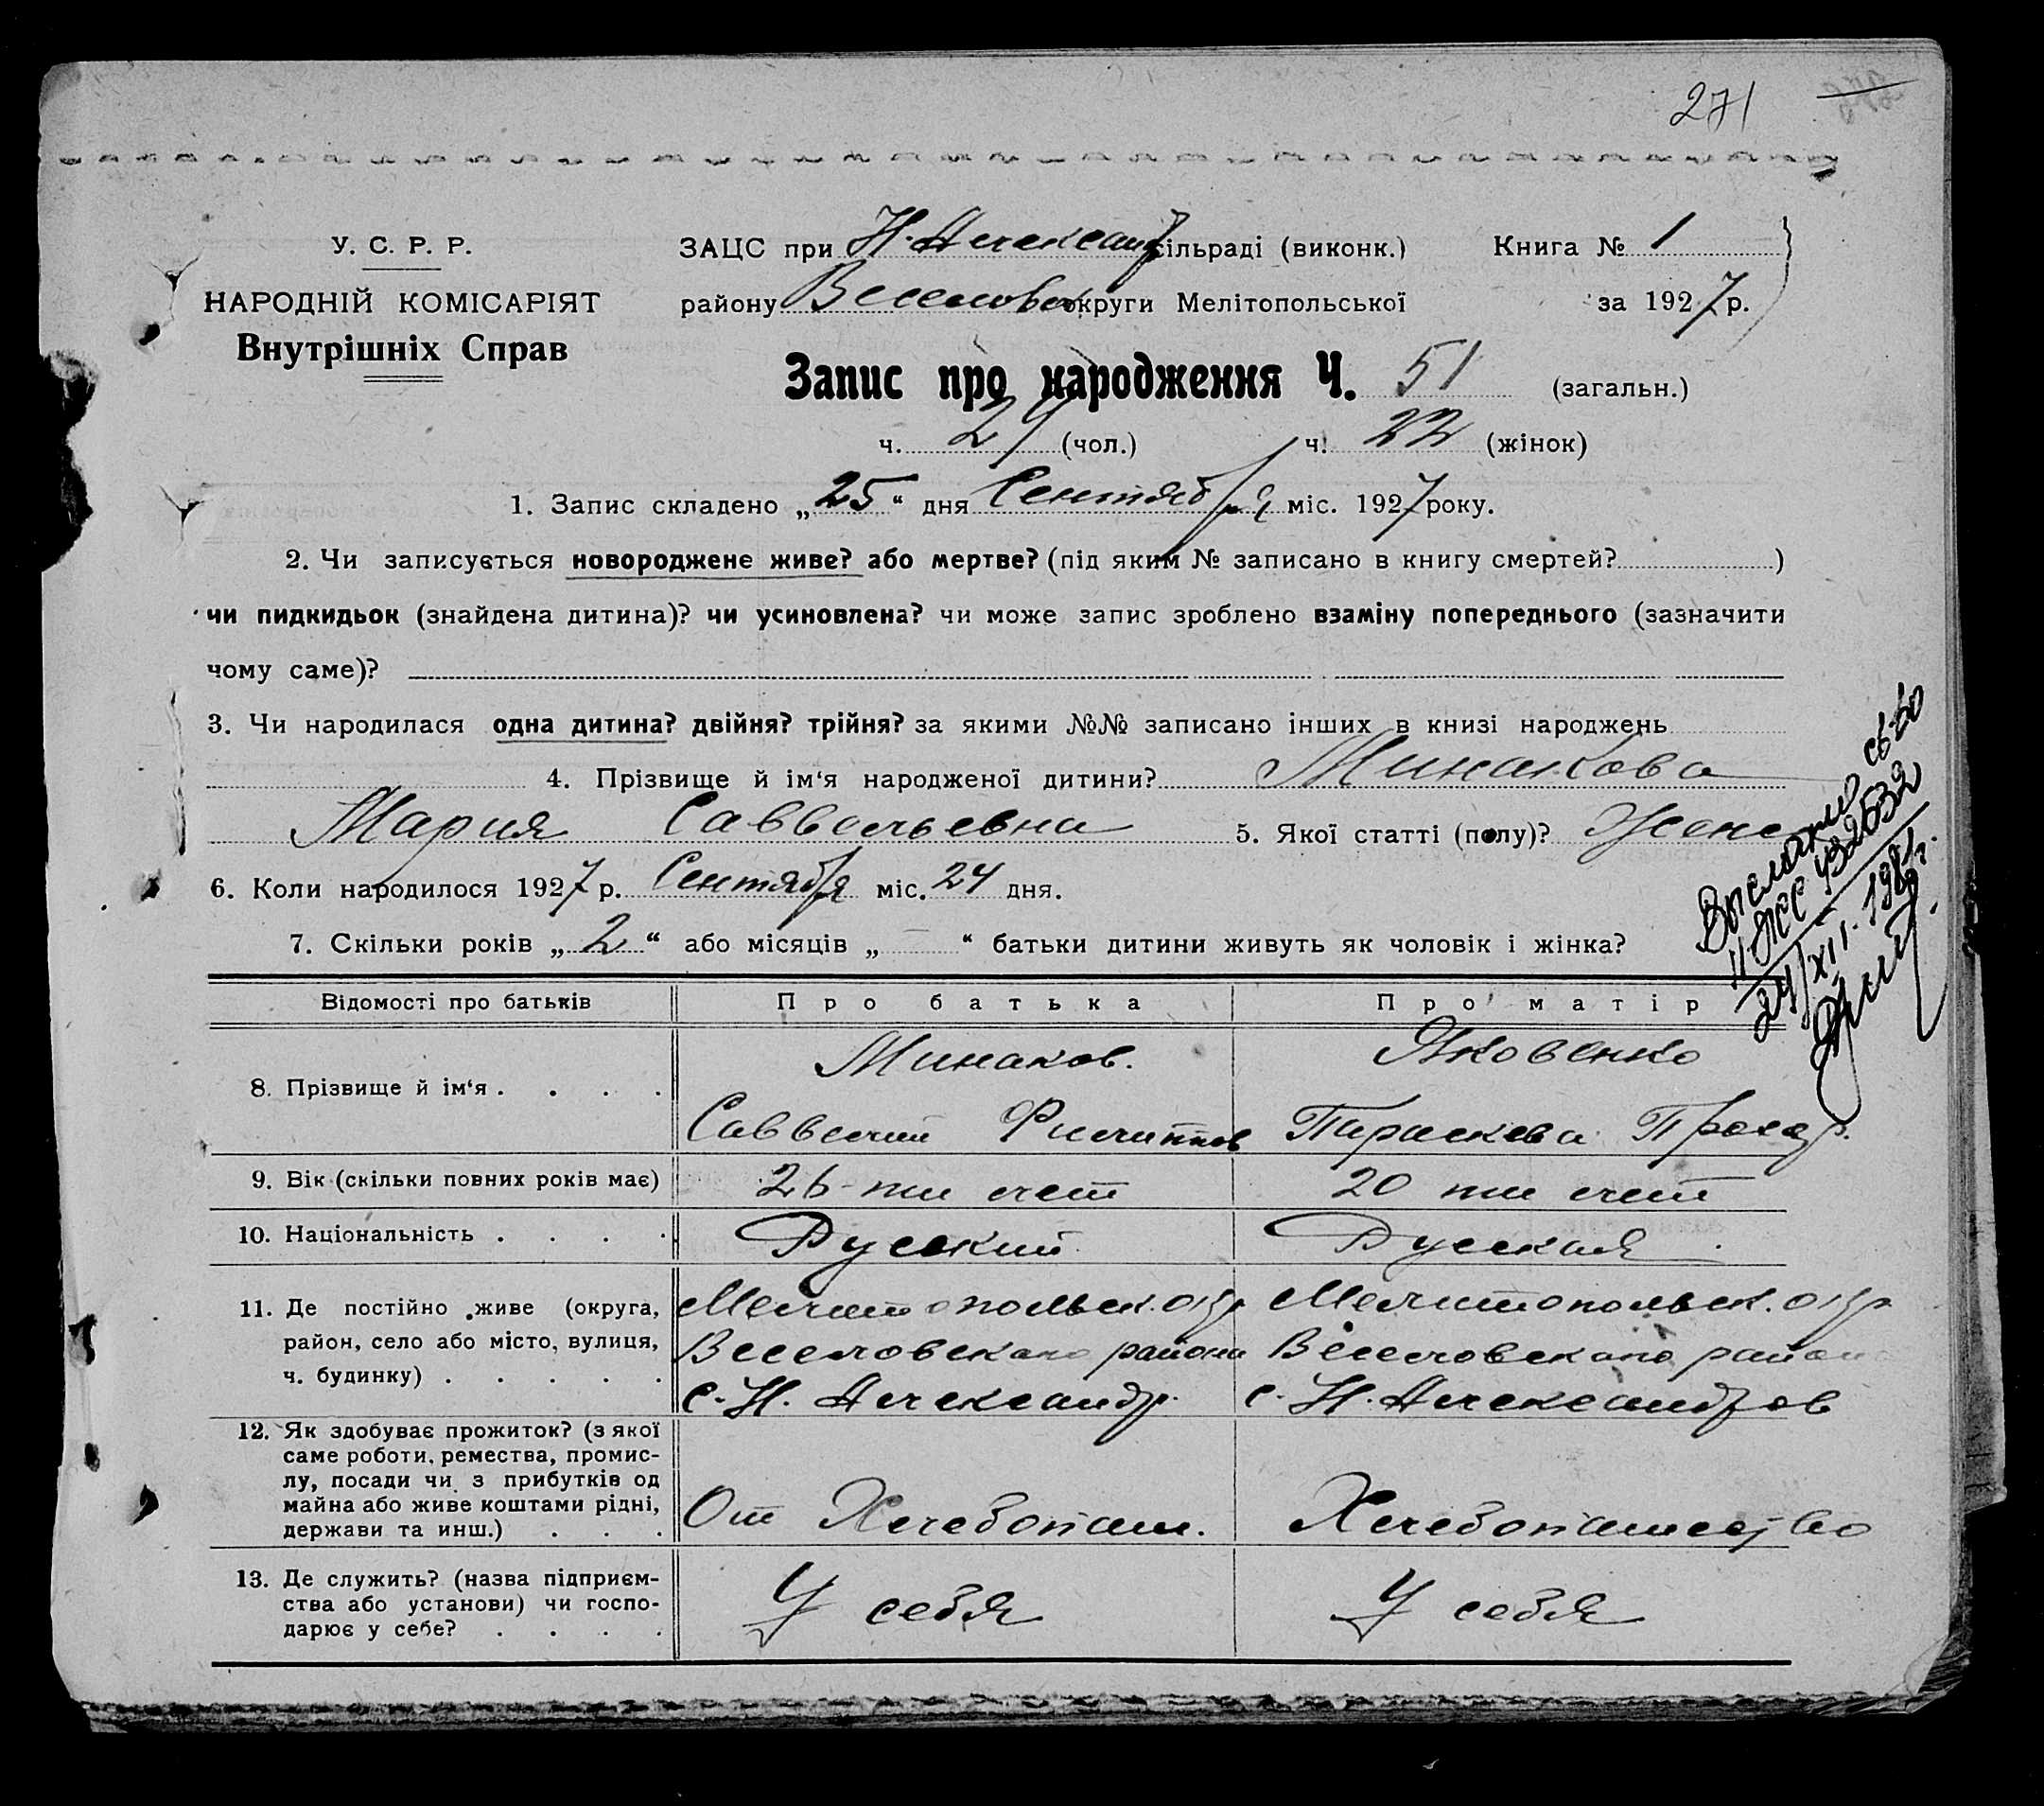 271
У. С. Р. Р.
НАРОДНІЙ КОМІСАРІЯТ
Внутрішніх Справ
ЗАЦС при Н. Александр сільраді (виконк.) Книга № 1
району Веселовск округи Мелітопольської за 1927 р.
Запис про народження Ч. 51 (загальн.)
ч. 29 (чол.) ч. 22 (жінок)
1. Запис складено „25“ дня Сентября міс. 1927 року.
2. Чи записується новороджене живе? або мертве? (під яким № записано в книгу смертей? )
чи пидкидьок (знайдена дитина)? чи усиновлена? чи може запис зроблено взаміну попереднього (зазначити
чому саме)?
3. Чи народилася одна дитина? двійня? трійня? за якими №№ записано інших в книзі народжень
4. Прізвище й ім‘я народженої дитини? Минакова
Мария Саввельевна 5. Якої статті (полу)? Женс
6. Коли народилося 1927 р. Сентября міс. 24 дня.
7. Скільки років „2“ або місяців „—“ батьки дитини живуть як чоловік і жінка?
св-во
432532
XII. 198
Відомості про батьків Про батька Про матір
8. Прізвище й ім‘я . . . . Минаков. Яковенко
Саввелий Филиппов Параскева Прохор.
9. Вік (скільки повних років має) 26-ти лет 20 ти лет
10. Національність . . . . Русский Русская
11. Де постійно живе (округа, Мелитопольск. окр Мелитопольск. окр
район, село або місто, вулиця, Веселовского района Веселовского района
ч. будинку) . . . . . с. Н. Александр. с. Н. Александров
12. Як здобуває прожиток? (з якої
саме роботи, ремества, промис-
лу, посади чи з прибутків од
майна або живе коштами рідні, От Хлебопаш. Хлебопашество
держави та инш.) . . .
13. Де служить? (назва підприєм-
ства або установи) чи госпо- У себя У себя
дарює у себе? . . . .